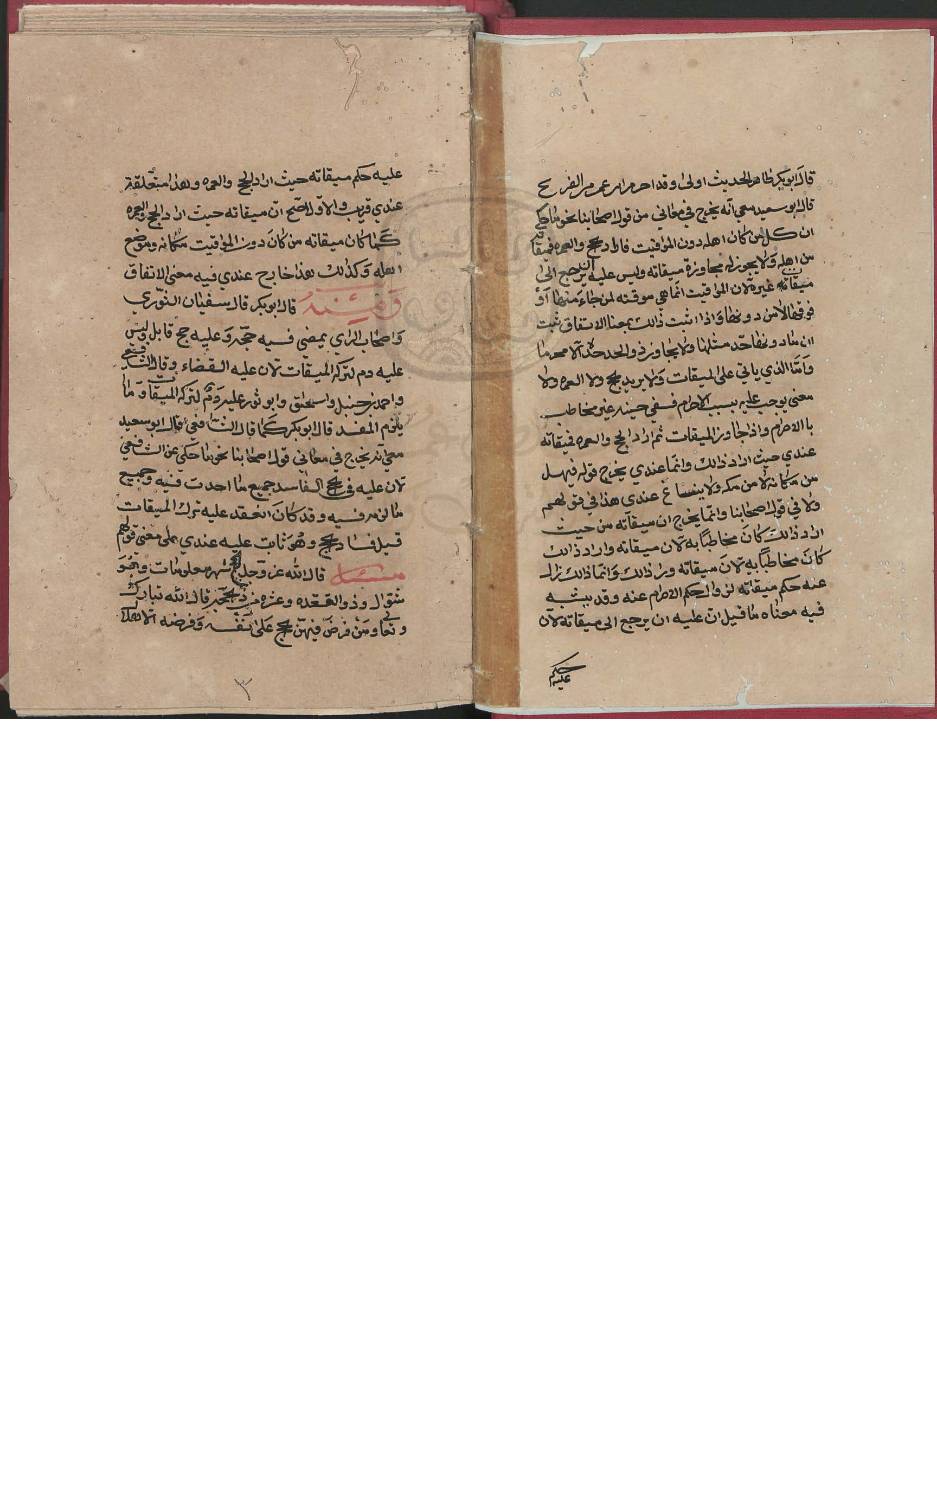 قال ابوبكر ظاهر الحديث اولى وقد احرم ابن عمر من الفرع ح
قال ابو سعيد معي انه يخرج في معاني من قول اصحابنا نحو ما حكي
ان كل من كان اهله دون المواقيت فاراد الحج والعمره فميقاته
من اهله ولا يجوز له مجاوزة ميقاته وليس عليه ان يرجع الى
ميقات غيره لان المواقيت انما هي موقته لمن جاء منها او
فوقها لا من دونها واذا ثبت ذلك بمعنا الاتفاق ثبت
ان مادونها حد مثلها ولا يجاوز ذو الحد حده الا محرما
واما الذي ياتي على الميقات ولا يريد الحج ولا العمره ولا
معنى يوجب عليه بسبب الاحرام ففي حينه غير مخاطب
بالاحرام واذا جاوز الميقات ثم اراد الحج والعمره فميقاته
عندي حيث اراد ذالك وانما عندي يخرج قوله فيهل
من مكانه لا من مكه ولا ينساغ عندي هذا في قولهم
ولا في قول اصحابنا وانما يخرج ان ميقاته من حيث
اراد ذالك كان مخاطبا به لان ميقاته واراد ذالك
كان مخاطبا به لان ميقاته وراذالك وانما ذالك زال
عنه حكم ميقاته لزوال حكم الاحرام عنه وقد يشبه
فيه معناه ما قيل ان عليه ان يرجع الى ميقاته لان
عليه حكم
عليه حكم ميقاته حيث اراد الحج والعمره وهذا متعلقة
عندي قريب والاول اصح ان ميقاته حيث اراد الحج والعمره
كما كان ميقاته من كان دون المواقيت مكانه وموضع
اهله وكذلك هذا خارج عندي فيه معنى الاتفاق
ومنه قال ابوبكر قال سفيان الثوري
واصحاب الراي يمضي فيه حجه وعليه حج قابل وليس
عليه دم لتركه الميقات لان عليه القضاء وقال الشافعي
واحمد بن حنبل واسحاق وابو ثور عليه دم لتركه الميقات وما
يلزم المفسد قال ابوبكر كما قال الشافعي قال ابو سعيد
معي انه يخرج في معاني قول اصحابنا نحو ما حكى عن الشافعي
لان عليه في الحج الفاسد جميع ما احدث فيه وجميع
ما لزمه فيه وقد كان انعقد عليه ترك الميقات
قبل فساد الحج وهو ثابت عليه عندي على معنى قولهم
مسئلة قال الله عز وجل الحج اشهر معلومات وهو
شوال وذو القعده وعشره من ذي الحجه قال الله تبارك
وتعا ومن فرض فيهن الحج على نفسه وفرضه الاهلال
٣